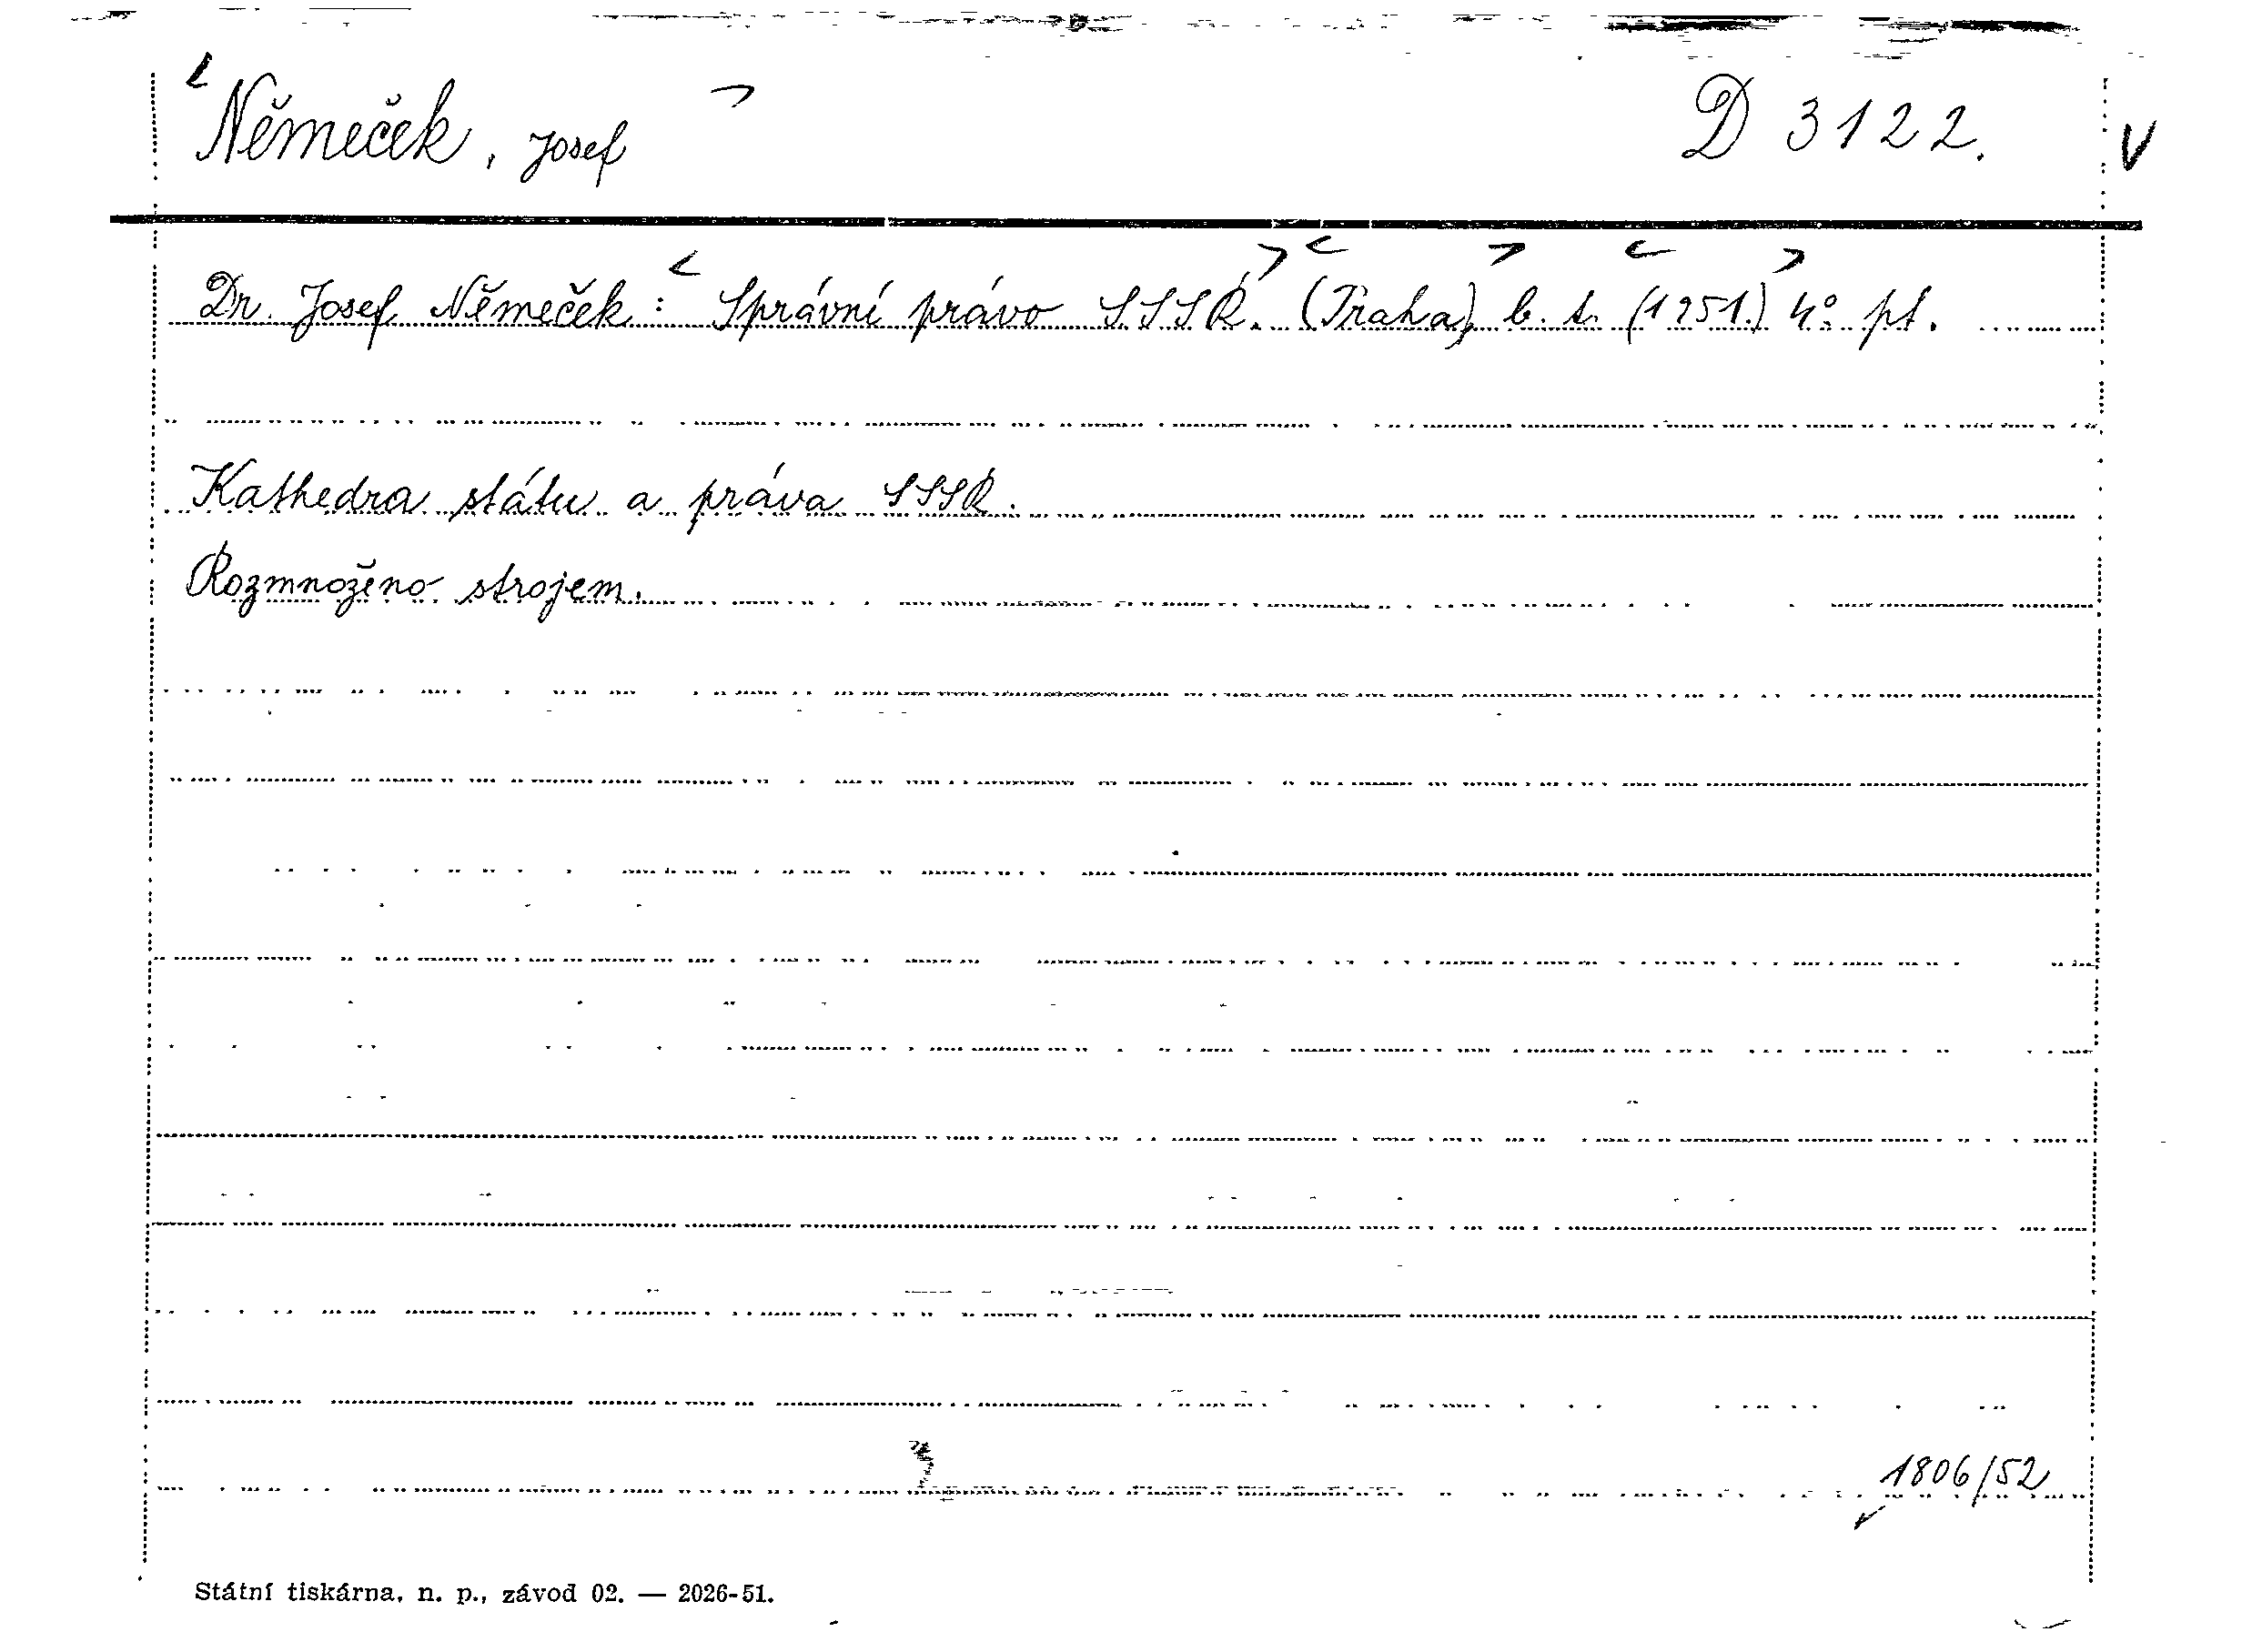 Němeček, Josef D 3122.
Dr. Josef Němeček: Správní právo SSSR. (Praha), b. t. (1951.) 4° pt.
Kathedra státu a práva SSSR.
Rozmnoženo strojem.
1806/52
Státní tiskárna, n. p., závod 02. — 2026-51.